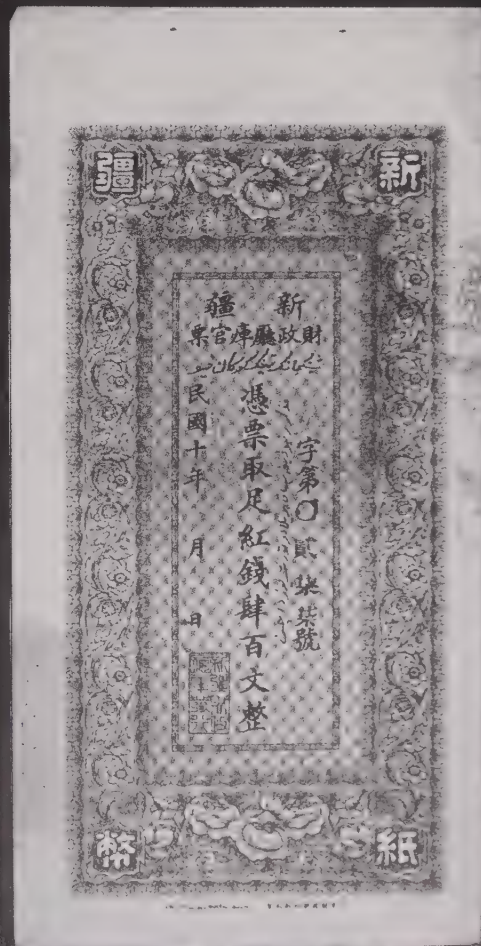 新疆
新疆
財政廳庫官票
字第〇貳柒柒號
憑票取足紅錢肆百文整
民國十年 月 日
紙幣